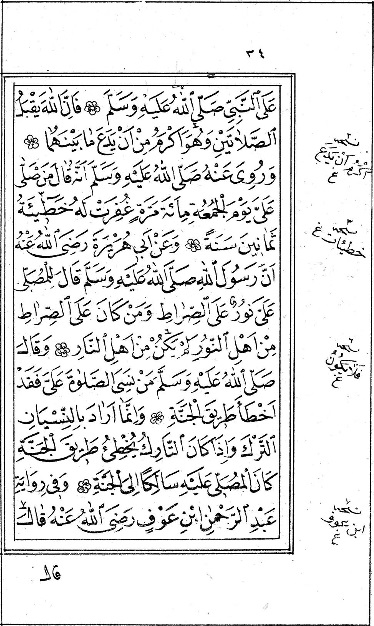 ٣٤
عَلَى النَّبِيِّ صَلَّى اللهُ عَلَيْهِ وَسَلَّمَ فَإِنَّ اللهَ يَقْبَلُ
الصَّلَاتَيْنِ وَهُوَ أَكْرَمُ مِنْ أَنْ يَدَعَ مَا بَيْنَهُمَا
وَرُوِيَ عَنْهُ صَلَّى اللهُ عَلَيْهِ وَسَلَّمَ أَنَّهُ قَالَ مَنْ صَلَّى
عَلَيَّ يَوْمَ الْجُمُعَةِ مِائَةَ مَرَّةٍ غُفِرَتْ لَهُ خَطِيئَةُ
ثَمَانِينَ سَنَةً وَعَنْ أَبِي هُرَيْرَةَ رَضِيَ اللهُ عَنْهُ
أَنَّ رَسُولَ اللهِ صَلَّى اللهُ عَلَيْهِ وَسَلَّمَ قَالَ لِلْمُصَلِّي
عَلَيَّ نُورٌ عَلَى الصِّرَاطِ وَمَنْ كَانَ عَلَى الصِّرَاطِ
مِنْ أَهْلِ النُّورِ لَمْ يَكُنْ مِنْ أَهْلِ النَّارِ وَقَالَ
صَلَّى اللهُ عَلَيْهِ وَسَلَّمَ مَنْ نَسِيَ الصَّلَوٰةَ عَلَيَّ فَقَدْ
أَخْطَأَ طَرِيقَ الْجَنَّةِ وَإِنَّمَا أَرَادَ بِالنِّسْيَانِ
التَّرْكَ وَإِذَا كَانَ التَّارِكُ يُخْطِئُ طَرِيقَ الْجَنَّةِ
كَانَ الْمُصَلِّي عَلَيْهِ سَالِكًا إِلَى الْجَنَّةِ وَفِي رِوَايَةِ
عَبْدِ الرَّحْمٰنِ ابْنِ عَوْفٍ رَضِيَ اللهُ عَنْهُ قَالَ
قال